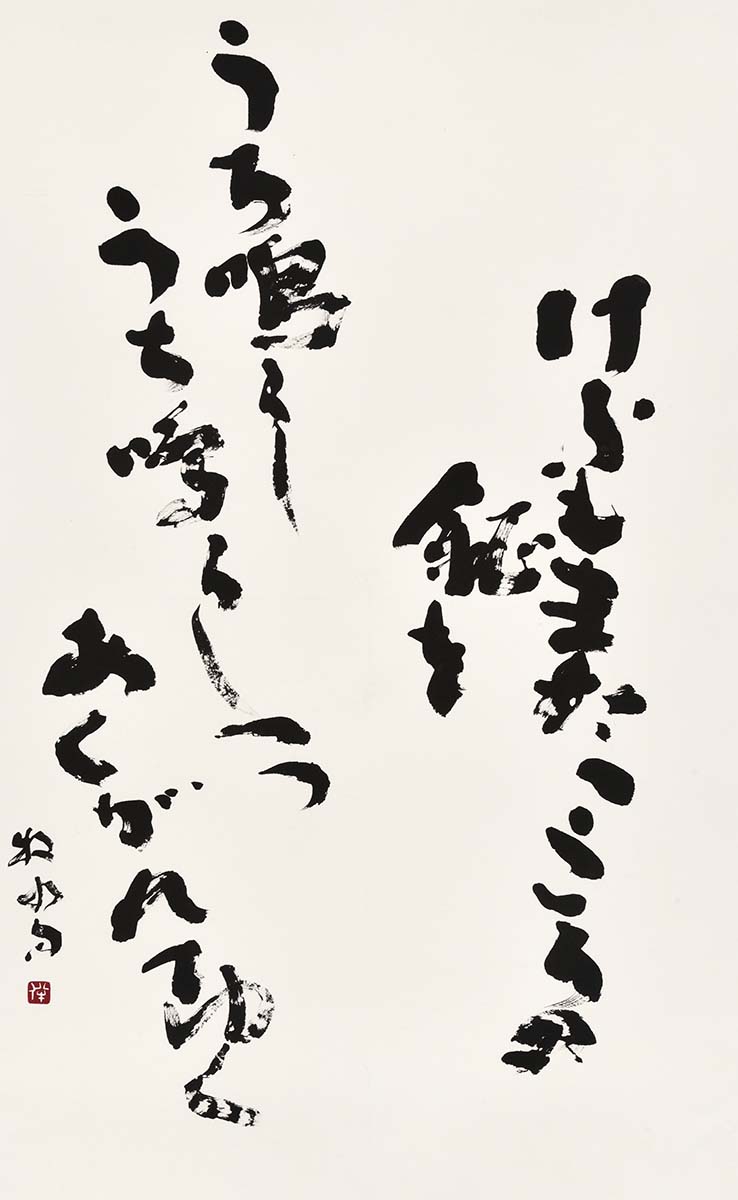 けふもまたこころの
鉦を
うち鳴らし
うち鳴らしつつ
あくがれてゆく
牧水